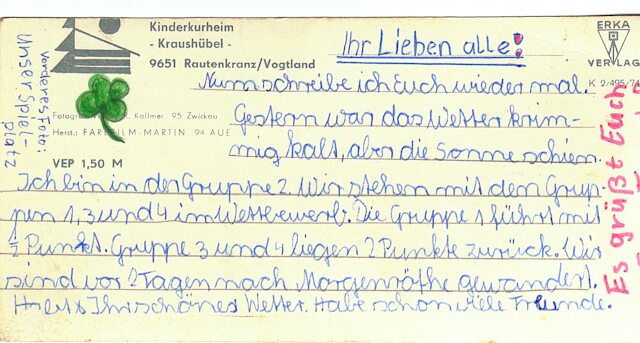 Kinderkurheim
- Kraushübel -
9651 Rautenkranz/Vogtland
ERKA
VERLAG
K 2/495/74
Vorderes Foto:
Unser Spiel-
platz
Fotogr. Kallmer. 95 Zwickau
Herst.: FARBFILM-MARTIN 94 AUE
VEP 1,50 M
Ihr Lieben alle!
Nun schreibe ich Euch wieder mal.
Gestern war das Wetter krim-
mig kalt, aber die Sonne schien.
Ich bin in der Gruppe 2. Wir stehen mit den Grup-
pen 1, 3 und 4 im Wettbewerb. Die Gruppe 1 führt mit
1/2 Punkt. Gruppe 3 und 4 liegen 2 Punkte zurück. Wir
sind vor 2 Tagen nach Morgenröthe gewandert.
Ihr schönes Wetter. Habe schon viele Freunde.
Es grüßt Euch